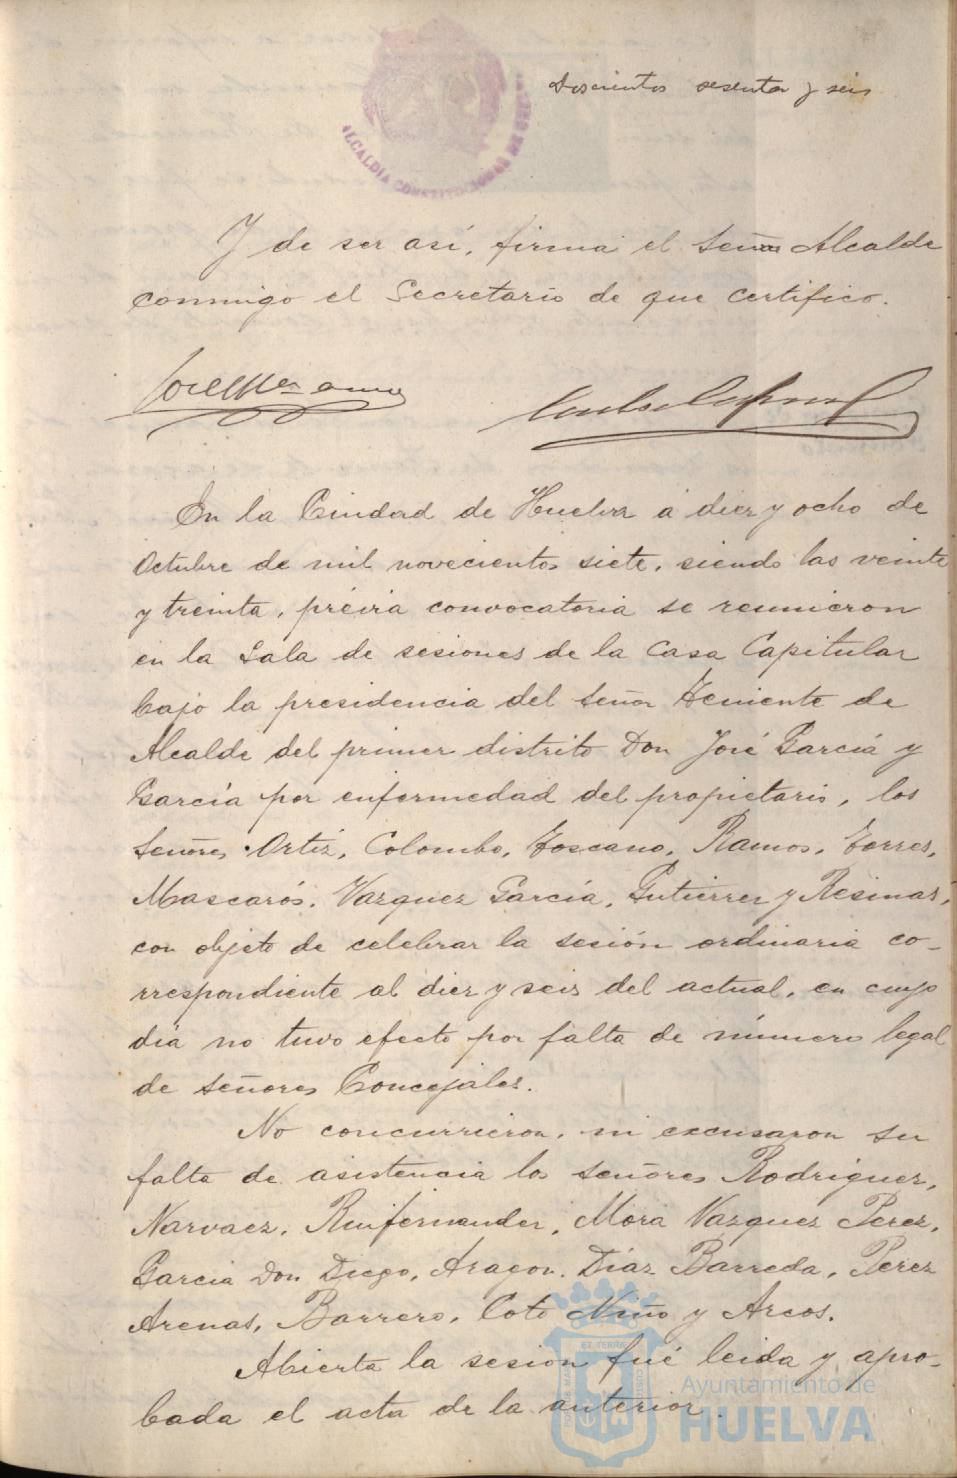 Doscientos sesenta y seis
ALCALDIA CONSTITUCIONAL DE
Y de ser así, firma el Señor Alcalde
conmigo el Secretario de que certifico.
En la Ciudad de Huelva á diez y ocho de
Octubre de mil novecientos siete, siendo las veinte
y treinta, préiria convocatoria se reunieron
en la Sala de sesiones de la Casa Capitular
bajo la presidencia del Señor Teniente de
Alcalde del primer distrito Don José García y
García por enfermedad del propietario, los
Señores Ortiz, Colombo, Toscano, Ramos, Torres,
Mascarós, Vazquez García, Gutierrez y Resinas,
con objeto de celebrar la sesión ordinaria co-
rrespondiente al diez y seis del actual, en cuyo
día no tuvo efecto por falta de número legal
de señores Concejales.
No concurrieron, ni excusaron su
falta de asistencia los señores Rodriguez,
Narvaez, Ruifernandez, Mora Vazquez Perez,
Garcia Don Diego, Aragon, Díaz Barreda, Perez
Arenas, Barrero, Coto Niño y Arcos.
Abierta la sesion fué leida y apro-
bada el acta de la anterior.
Ayuntamiento de
HUELVA